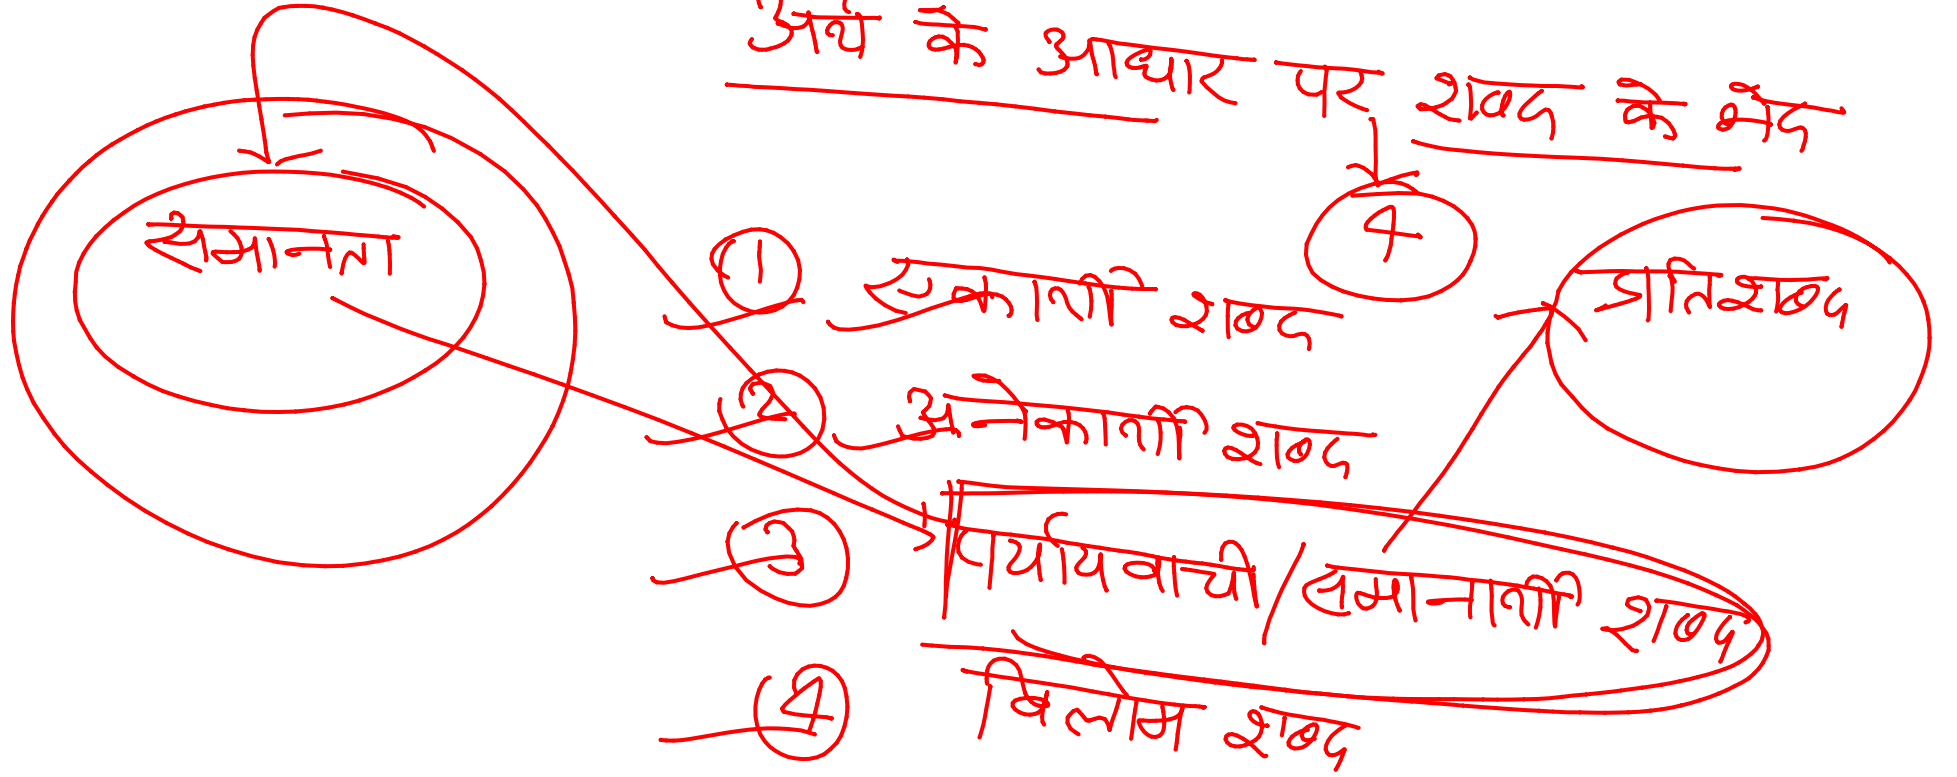 अर्थ के आधार पर शब्द के भेद
4
समानता
1 एकार्थी शब्द
प्रतिशब्द
2 अनेकार्थी शब्द
3 पर्यायवाची/समानार्थी शब्द
4 विलोम शब्द